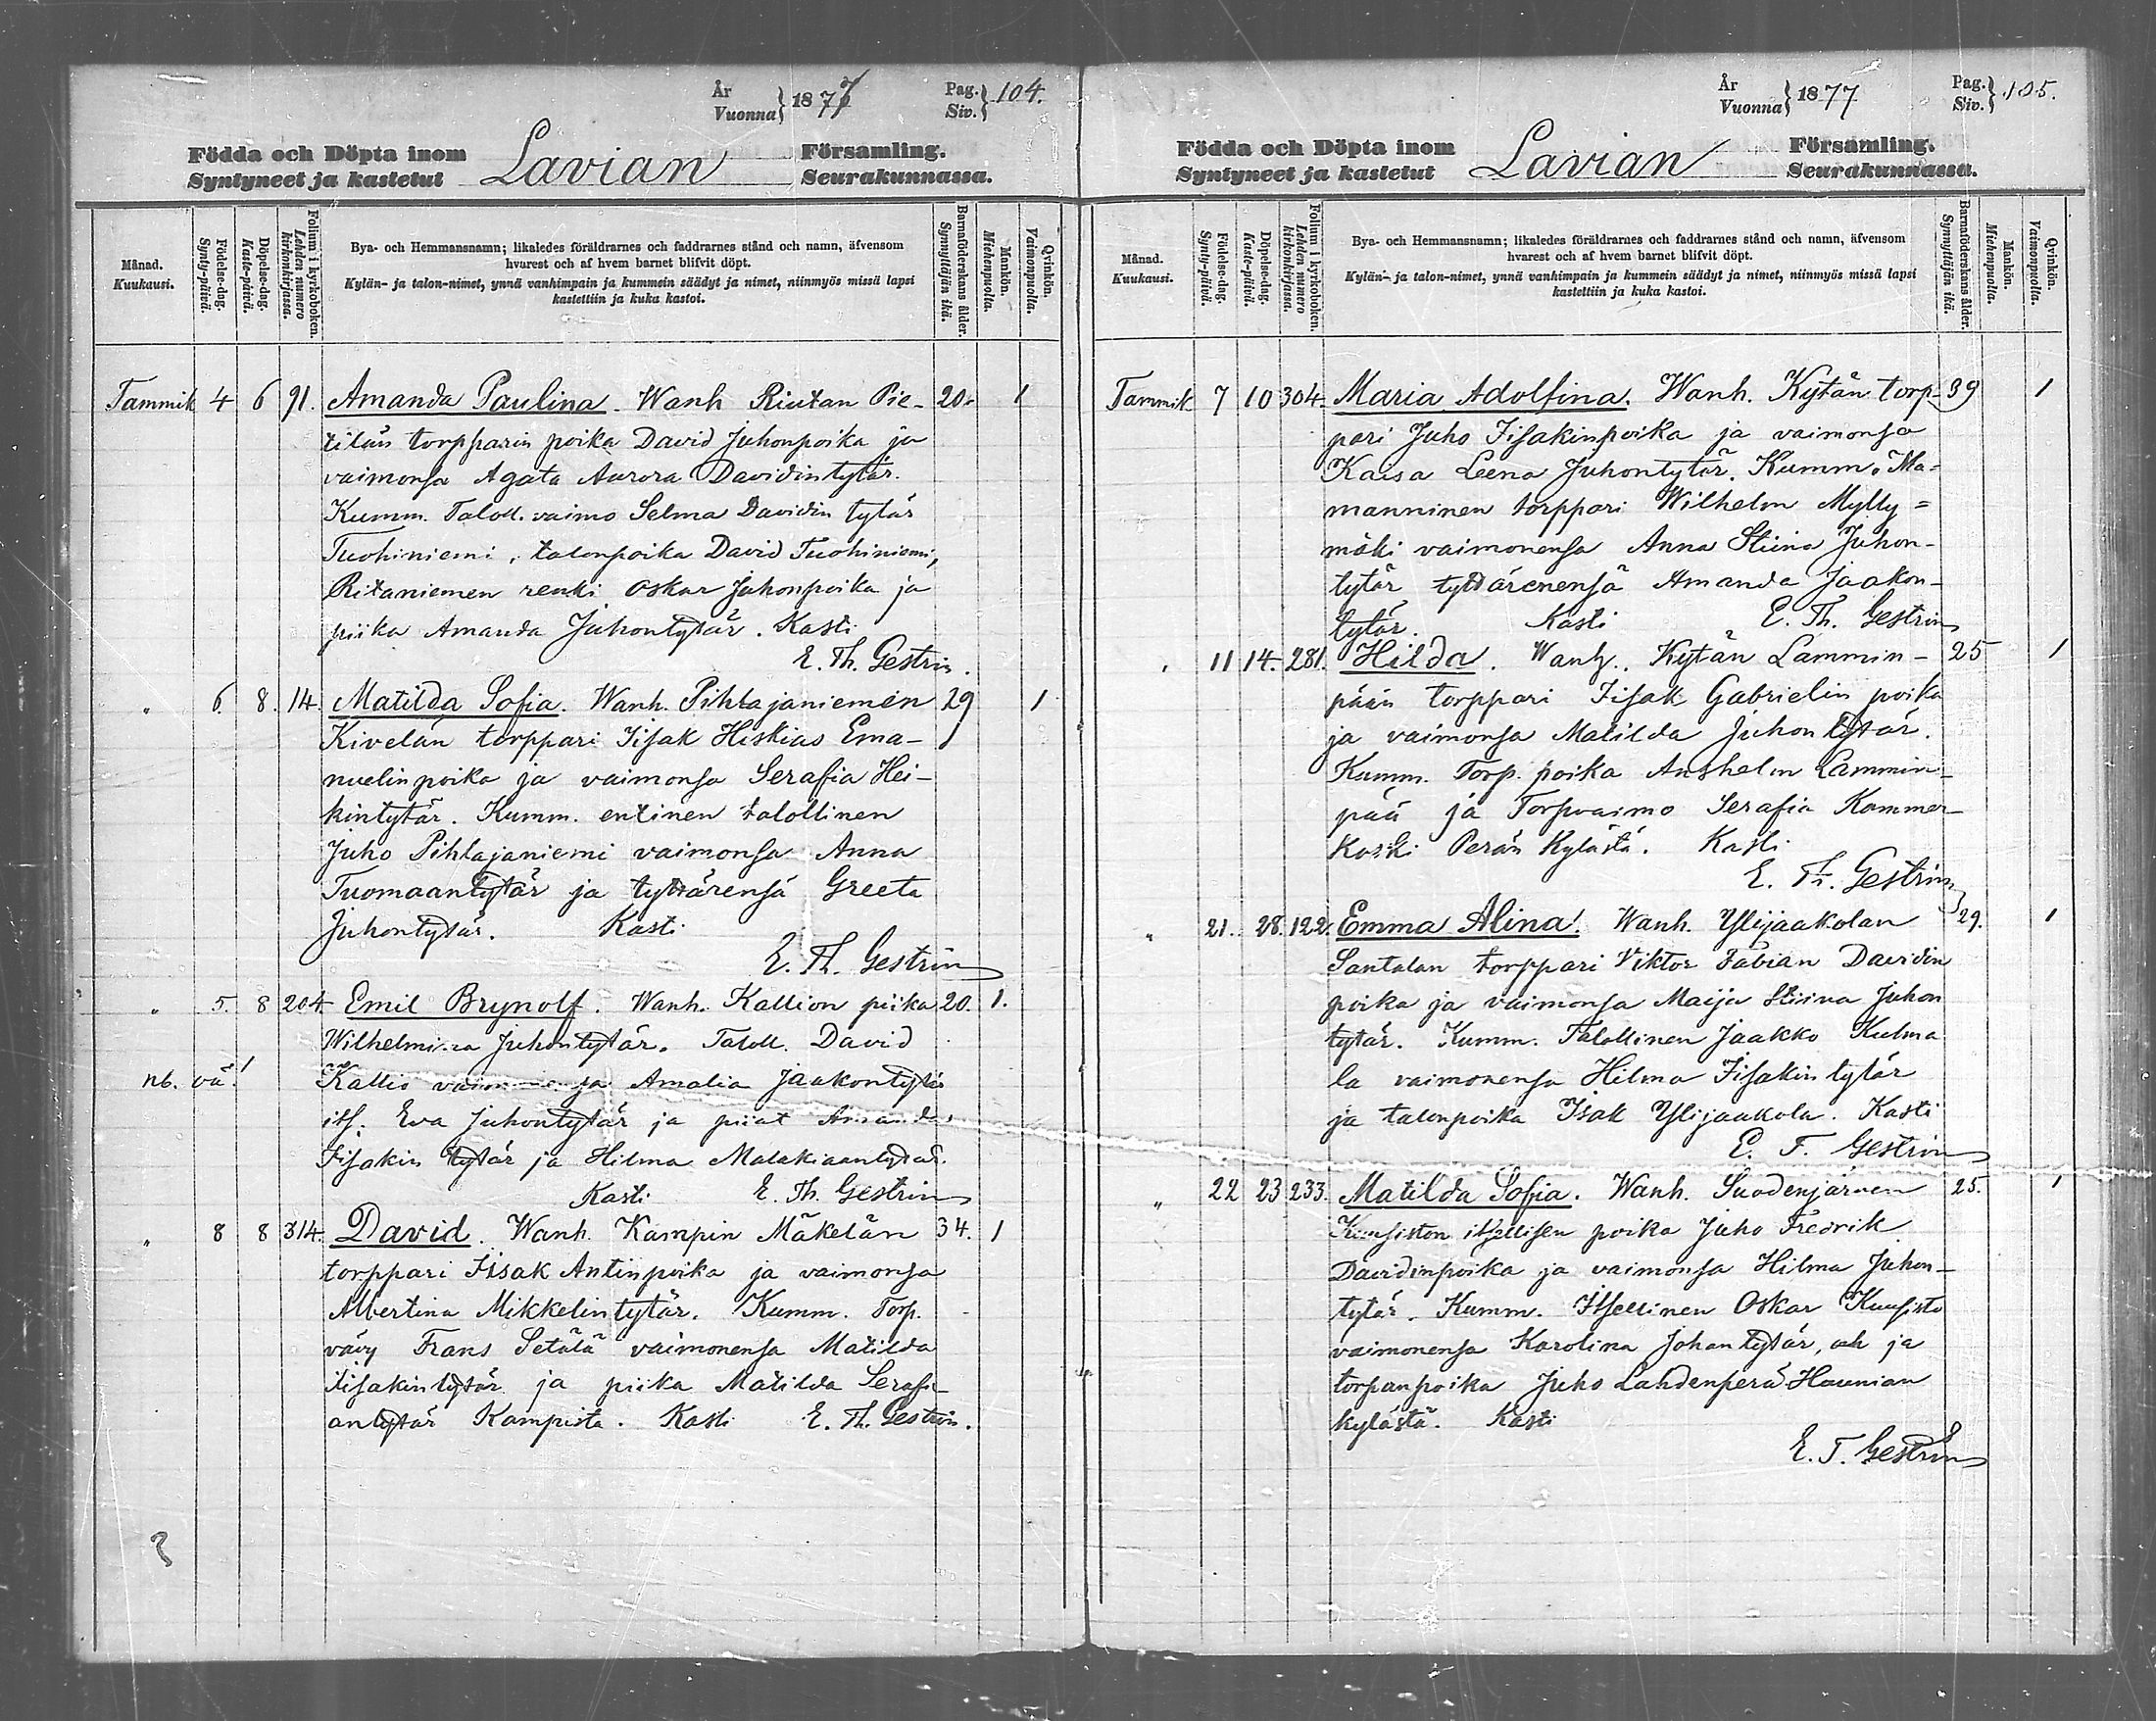 År
Vuonna } 1877
Pag.
Siv. } 104.
Födda och Döpta inom
Syntyneet ja kastetut
Lavian
Församling.
Seurakunnassa.
Månad.
Kuukausi.
Födelse-dag.
Synty-päivä.
Döpelse-dag.
Kaste-päivä.
Folium i kyrkoboken.
Lehden numero
kirkonkirjassa.
Bya- och Hemmansnamn; likaledes föräldrarnes och faddrarnes stånd och namn, äfvensom
hvarest och af hvem barnet blifvit döpt.
Kylän- ja talon-nimet, ynnä vanhimpain ja kummein säädyt ja nimet, niinmyös missä lapsi
kastettiin ja kuka kastoi.
Barnaföderskans ålder.
Synnyttäjän ikä.
Mankön.
Miehenpuolta.
Qvinkön.
Vaimonpuolta.
Tammik 4 6 91. Amanda Paulina. Wanh Riutan Pie- 20. 1
tilän torpparin poika David Juhonpoika ja
vaimonsa Agata Aurora Davidintytär.
Kumm. Taloll. vaimo Selma Davidin tytär
Tuohiniemi, talonpoika David Tuohiniemi,
Ritaniemen renki Oskar Juhonpoika ja
piika Amanda Juhontytär. Kasti
E. Th. Gestrin.
" 6. 8. 14. Matilda Sofia. Wanh. Pihlajaniemen 29 1
Kivelän torppari Iisak Hiskias Ema-
nuelinpoika ja vaimonsa Serafia Hei-
kintytär. Kumm. entinen talollinen
Juho Pihlajaniemi vaimonsa Anna
Tuomaantytär ja tyttärensä Greeta
Juhontytär. Kasti
E. Th. Gestrin
" 5. 8 204 Emil Brynolf. Wanh. Kallion piika 20. 1.
Wilhelmina Juhontytär. Taloll. David
nb. vä! Kallio Amalia Jaakontytär
its. Eva Juhontytär ja piiat Amanda
Iisakin tytär ja Hilma Malakiaantytär.
Kasti E. Th. Gestrin
" 8 8 314. David. Wanh. Kampin Mäkelän 34. 1
torppari Iisak Antinpoika ja vaimonsa
Albertina Mikkelintytär. Kumm. Torp.
vävy Frans Setälä vaimonensa Matilda
Iisakintytär ja piika Matilda Serafi-
antytär Kampista. Kasti E. Th. Gestrin.
År
Vuonna } 1877
Pag.
Siv. } 105.
Födda och Döpta inom
Syntyneet ja kastetut
Lavian
Församling.
Seurakunnassa.
Månad.
Kuukausi.
Födelse-dag.
Synty-päivä.
Döpelse-dag.
Kaste-päivä.
Folium i kyrkoboken.
Lehden numero
kirkonkirjassa.
Bya- och Hemmansnamn; likaledes föräldrarnes och faddrarnes stånd och namn, äfvensom
hvarest och af hvem barnet blifvit döpt.
Kylän- ja talon-nimet, ynnä vanhimpain ja kummein säädyt ja nimet, niinmyös missä lapsi
kastettiin ja kuka kastoi.
Barnaföderskans ålder.
Synnyttäjän ikä.
Mankön.
Miehenpuolta.
Qvinkön.
Vaimonpuolta.
Tammik 7 10 304. Maria Adolfina. Wanh. Kytän torp- 39 1
pari Juho Iisakinpoika ja vaimonsa
Kaisa Leena Juhontytär. Kumm. Ma-
manninen torppari Wilhelm Mylly=
mäki vaimonensa Anna Stiina Juhon-
tytär tyttärenensä Amanda Jaakon-
tytär. Kasti E. Th. Gestrin
" 11 14. 281. Hilda. Wanh. Kytän Lammin- 25 1
pään torppari Iisak Gabrielin poika
ja vaimonsa Matilda Juhontytär.
Kumm. Torp. poika Anshelm Lammin-
pää ja Torpvaimo Serafia Kammer-
koski Perän kylästä. Kasti
E. Th. Gestrin
" 21. 28. 122. Emma Alina. Wanh. Ylijaakolan 29. 1
Santalan torppari Viktor Fabian Davidin
poika ja vaimonsa Maija Stiina Juhon
tytär. Kumm. Talollinen Jaakko Kulma
la vaimonensa Hilma Iisakin tytär
ja talonpoika Isak Ylijaakola. Kasti
E. T. Gestrin
" 22 23 233. Matilda Sofia. Wanh. Suodenjärven 25. 1
Kuusiston itsellisen poika Juho Fredrik
Davidinpoika ja vaimonsa Hilma Juhon-
tytär. Kumm. Itsellinen Oskar Kuusisto
vaimonensa Karolina Johantytär, ja
torpanpoika Juho Lahdenperä Haunian
kylästä. Kasti
E. T. Gestrin